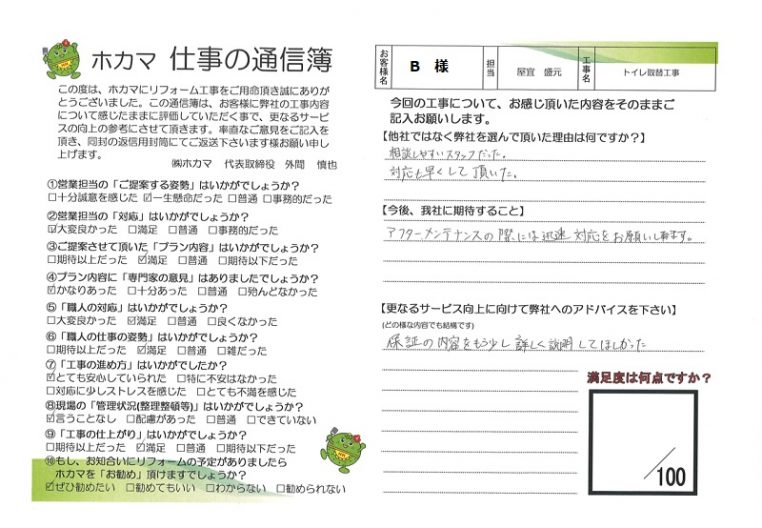 ホカマ 仕事の通信簿
この度は、ホカマにリフォーム工事をご用命頂き誠にありが
とうございました。この通信簿は、お客様に弊社の工事内容
について感じたままに評価していただく事で、更なるサービ
スの向上の参考にさせて頂きます。率直なご意見をご記入
を頂き、同封の返信用封筒にてご返送下さいます様お願い申
し上げます。
㈱ホカマ 代表取締役 外間 慎也
①営業担当の「ご提案する姿勢」はいかがでしょうか?
□十分誠意を感じた ☑一生懸命だった □普通 □事務的だった
②営業担当の「対応」はいかがでしょうか?
☑大変良かった □満足 □普通 □事務的だった
③ご提案させて頂いた「プラン内容」はいかがでしょうか?
□期待以上だった ☑満足 □普通 □期待以下だった
④プラン内容に「専門家の意見」はありましたでしょうか?
☑かなりあった □十分あった □普通 □殆んどなかった
⑤「職人の対応」はいかがでしょうか?
□大変良かった ☑満足 □普通 □良くなかった
⑥「職人の仕事の姿勢」はいかがでしょうか?
□期待以上だった ☑満足 □普通 □雑だった
⑦「工事の進め方」はいかがでしたか?
☑とても安心していられた □特に不安はなかった
□対応に少しストレスを感じた □とても不満を感じた
⑧現場の「管理状況(整理整頓等)」はいかがでしょうか?
☑言うことなし □配慮があった □普通 □できていない
⑨「工事の仕上がり」はいかがでしょうか?
□期待以上だった ☑満足 □普通 □期待以下だった
⑩もし、お知合いにリフォームの予定がありましたら
ホカマを「お勧め」頂けますでしょうか?
☑ぜひ勧めたい □勧めてもいい □わからない □勧められない
お客様名 B 様 担当 屋宜 盛元 工事名 トイレ取替工事
今回の工事について、お感じ頂いた内容をそのままご
記入お願いします。
【他社ではなく弊社を選んで頂いた理由は何ですか?】
相談しやすいスタッフだった。
対応も早くして頂いた。
【今後、我社に期待すること】
アフターメンテナンスの際には迅速対応をお願いします。
【更なるサービス向上に向けて弊社へのアドバイスを下さい】
(どの様な内容でも結構です)
保証の内容をもう少し詳しく説明してほしかった
満足度は何点ですか?
/100